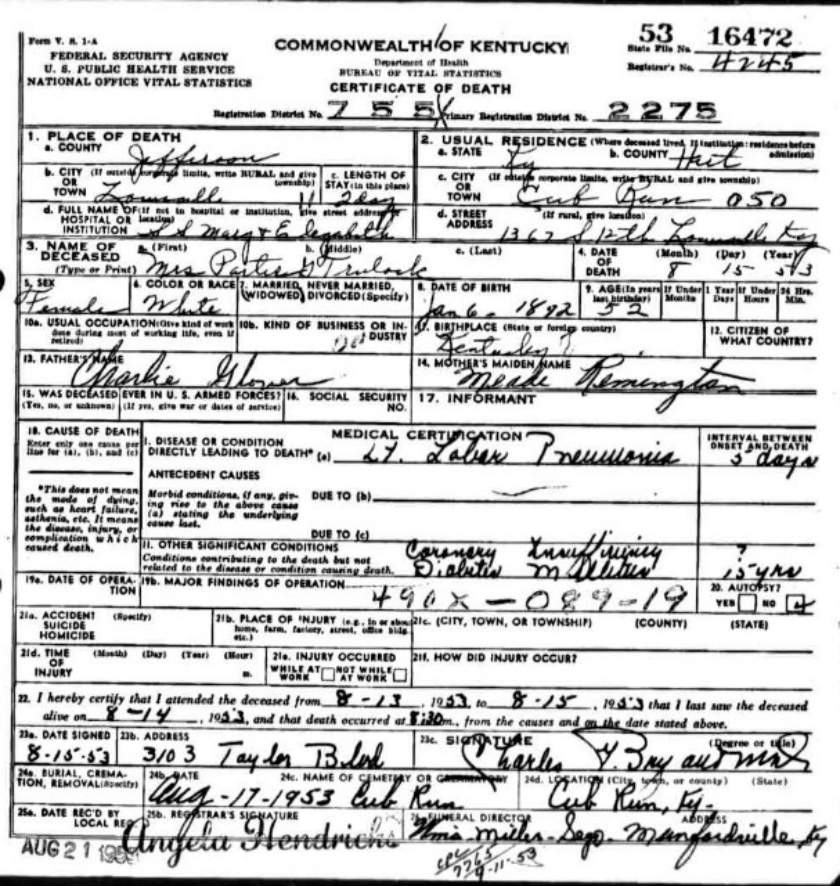 Form V. S. 1-A
FEDERAL SECURITY AGENCY
U. S. PUBLIC HEALTH SERVICE
NATIONAL OFFICE VITAL STATISTICS
COMMONWEALTH OF KENTUCKY
Department of Health
BUREAU OF VITAL STATISTICS
CERTIFICATE OF DEATH
53 State File No. 16472
Registrar's No. 4245
Registration District No. 755 Primary Registration District No. 2275
1. PLACE OF DEATH
a. COUNTY Jefferson
b. CITY (If outside corporate limits, write RURAL and give township) OR TOWN Louisville
c. LENGTH OF STAY (in this place) 2 day
d. FULL NAME OF (If not in hospital or institution, give street address or location) HOSPITAL OR INSTITUTION S S Mary & Elizabeth
2. USUAL RESIDENCE (Where deceased lived. If institution: residence before admission)
a. STATE Ky b. COUNTY Hart
c. CITY (If outside corporate limits, write RURAL and give township) OR TOWN Cub Run 050
d. STREET ADDRESS (If rural, give location) 1367 S 12th Louisville Ky
3. NAME OF DECEASED (Type or Print) a. (First) b. (Middle) c. (Last)
Mrs G Trulock
4. DATE OF DEATH (Month) (Day) (Year) 8 15 53
5. SEX Female
6. COLOR OR RACE White
7. MARRIED, NEVER MARRIED, WIDOWED, DIVORCED (Specify)
8. DATE OF BIRTH Jan 6. 1892
9. AGE (In years last birthday) 52 If Under 1 Year Months Days If Under 24 Hrs. Hours Min.
10a. USUAL OCCUPATION (Give kind of work done during most of working life, even if retired)
10b. KIND OF BUSINESS OR INDUSTRY
11. BIRTHPLACE (State or foreign country) Kentucky
12. CITIZEN OF WHAT COUNTRY?
13. FATHER'S NAME Charlie Glover
14. MOTHER'S MAIDEN NAME Meade Remington
15. WAS DECEASED EVER IN U. S. ARMED FORCES? (Yes, no, or unknown) (If yes, give war or dates of service)
16. SOCIAL SECURITY NO.
17. INFORMANT
18. CAUSE OF DEATH
Enter only one cause per line for (a), (b), and (c)
*This does not mean the mode of dying, such as heart failure, asthenia, etc. It means the disease, injury, or complication which caused death.
MEDICAL CERTIFICATION
INTERVAL BETWEEN ONSET AND DEATH
I. DISEASE OR CONDITION DIRECTLY LEADING TO DEATH* (a) Lt. Lobar Pneumonia 5 days
ANTECEDENT CAUSES
Morbid conditions, if any, giving rise to the above cause (a) stating the underlying cause last.
DUE TO (b)
DUE TO (c)
II. OTHER SIGNIFICANT CONDITIONS
Conditions contributing to the death but not related to the disease or condition causing death.
Coronary Insufficiency ?
Diabetes Mellitus 15 yrs
19a. DATE OF OPERATION
19b. MAJOR FINDINGS OF OPERATION
490X-089-19
20. AUTOPSY? YES NO
21a. ACCIDENT SUICIDE HOMICIDE (Specify)
21b. PLACE OF INJURY (e.g., in or about home, farm, factory, street, office bldg. etc.)
21c. (CITY, TOWN, OR TOWNSHIP) (COUNTY) (STATE)
21d. TIME OF INJURY (Month) (Day) (Year) (Hour) m.
21e. INJURY OCCURRED WHILE AT WORK NOT WHILE AT WORK
21f. HOW DID INJURY OCCUR?
22. I hereby certify that I attended the deceased from 8-13, 1953, to 8-15, 1953 that I last saw the deceased
alive on 8-14, 1953, and that death occurred at 8:30 m., from the causes and on the date stated above.
23a. DATE SIGNED 8-15-53
23b. ADDRESS 3103 Taylor Blvd
23c. SIGNATURE (Degree or title) Charles Y. Bryant MD
24a. BURIAL, CREMATION, REMOVAL (Specify)
24b. DATE Aug-17-1953
24c. NAME OF CEMETERY OR CREMATORY Cub Run
24d. LOCATION (City, town, or county) (State) Cub Run, Ky-
25a. DATE REC'D BY LOCAL REG. AUG 21 195
25b. REGISTRAR'S SIGNATURE Angela Hendricks
FUNERAL DIRECTOR ADDRESS
Miller- Munfordville, Ky
7765
9-11-53